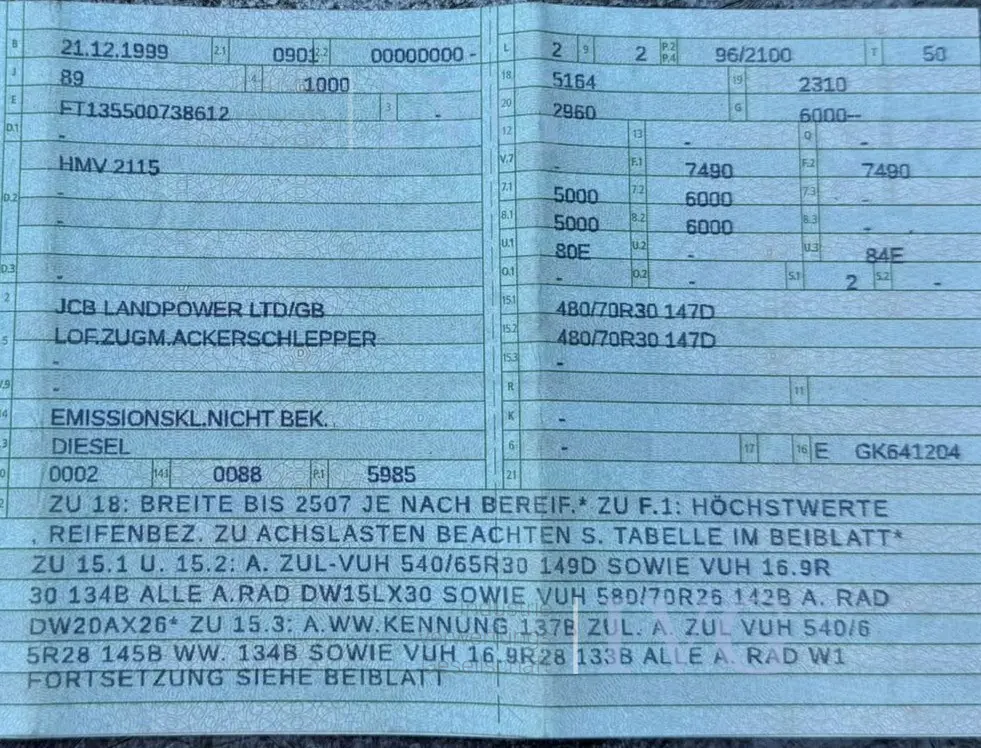 B 21.12.1999 2.1 0901 2.2 00000000 -
J 89 4 1000
E FT135500738612 3 -
D.1 -
HMV 2115
D.2 -
-
D.3 -
2 JCB LANDPOWER LTD/GB
5 LOF.ZUGM.ACKERSCHLEPPER
-
V.9 -
14 EMISSIONSKL.NICHT BEK.
P.3 DIESEL
10 0002 14.1 0088 P.1 5985
L 2 9 2 P.2 P.4 96/2100 T 50
18 5164 19 2310
20 2960 G 6000--
12 - 13 - Q -
V.7 - F.1 7490 F.2 7490
7.1 5000 7.2 6000 7.3 -
8.1 5000 8.2 6000 8.3 -
U.1 80E U.2 - U.3 84E
O.1 - O.2 - S.1 2 S.2 -
15.1 480/70R30 147D
15.2 480/70R30 147D
15.3 -
R 11
K -
6 - 17 16 E GK641204
21
ZU 18: BREITE BIS 2507 JE NACH BEREIF.* ZU F.1: HÖCHSTWERTE
, REIFENBEZ. ZU ACHSLASTEN BEACHTEN S. TABELLE IM BEIBLATT*
ZU 15.1 U. 15.2: A. ZUL-VUH 540/65R30 149D SOWIE VUH 16.9R
30 134B ALLE A.RAD DW15LX30 SOWIE VUH 580/70R26 142B A. RAD
DW20AX26* ZU 15.3: A.WW.KENNUNG 137B ZUL. A. ZUL VUH 540/6
5R28 145B WW. 134B SOWIE VUH 16.9R28 133B ALLE A. RAD W1
FORTSETZUNG SIEHE BEIBLATT